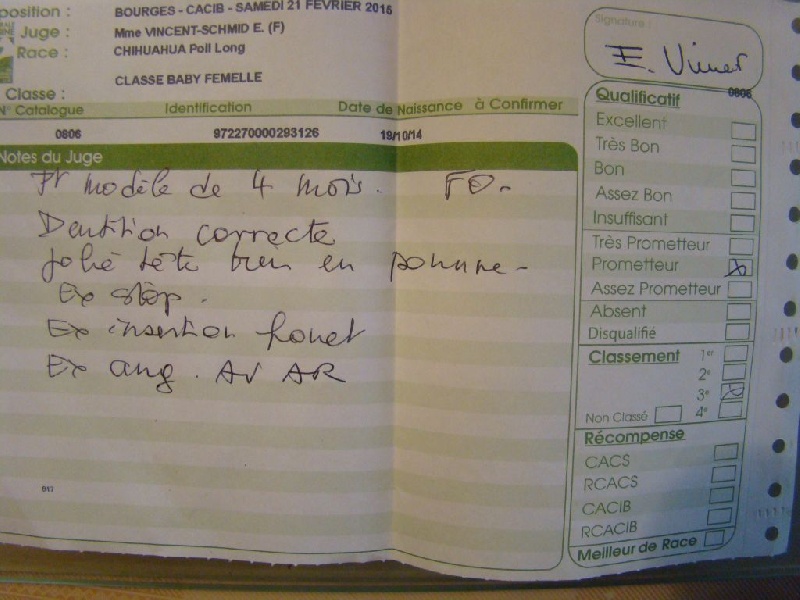 position : BOURGES - CACIB - SAMEDI 21 FÉVRIER 2015
Juge : Mme VINCENT-SCHMID E. (F)
Race : CHIHUAHUA Poil Long
Classe : CLASSE BABY FEMELLE
N° Catalogue Identification Date de Naissance à Confirmer
0806 972270000293126 19/10/14
Notes du Juge
modèle de 4 mois.
Dentition correcte
jolie tête bien en pomme -
Ex stop.
Ex insertion fouet
Ex ang. AV AR
917
Signature :
E. Vincent
Qualificatif 0806
Excellent
Très Bon
Bon
Assez Bon
Insuffisant
Très Prometteur
Prometteur
Assez Prometteur
Absent
Disqualifié
Classement 1er
2e
3e
Non Classé 4e
Récompense
CACS
RCACS
CACIB
RCACIB
Meilleur de Race